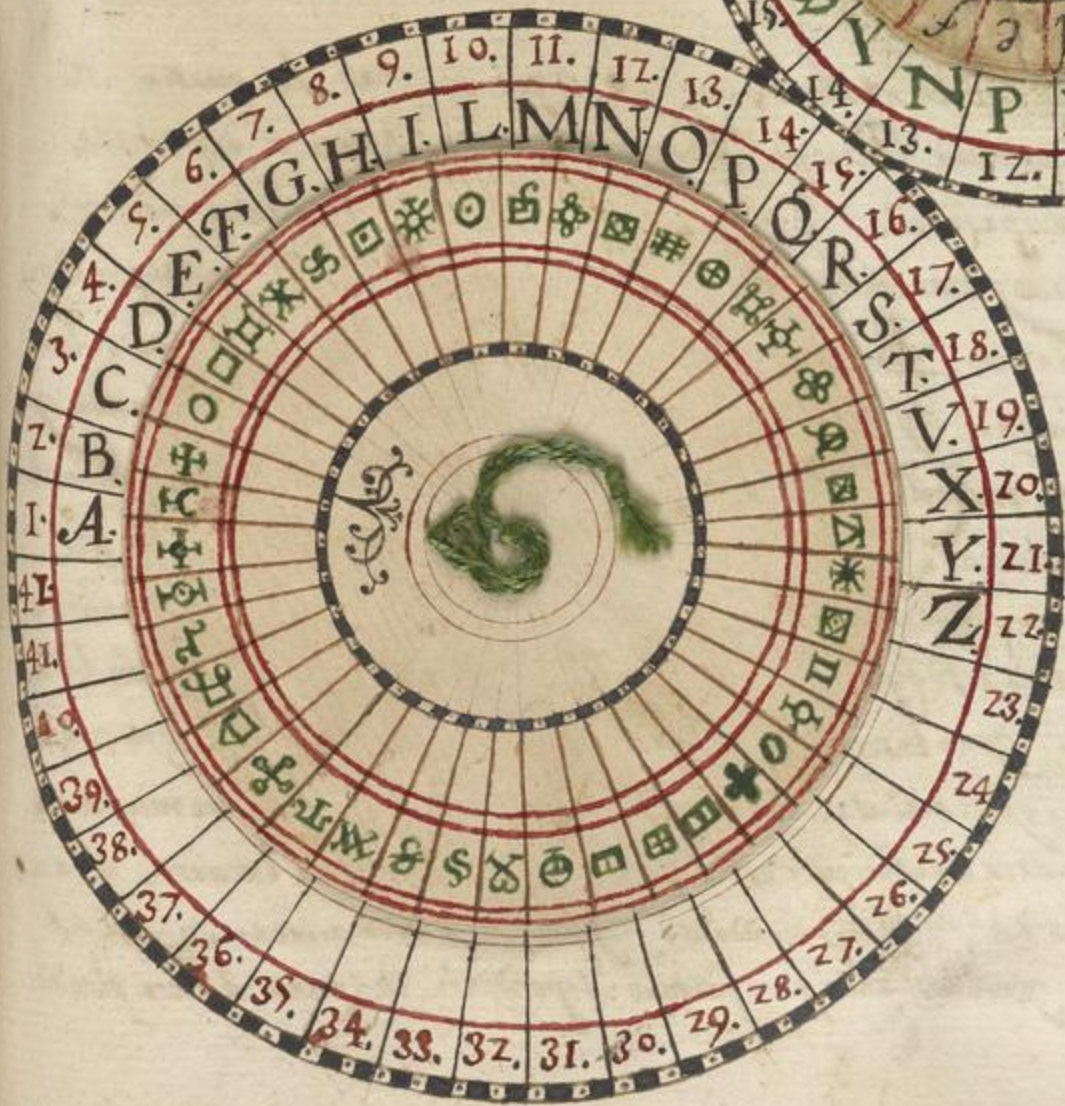 1. 2. 3. 4. 5. 6. 7. 8. 9. 10. 11. 12. 13. 14. 15. 16. 17. 18. 19. 20. 21. 22. 23. 24. 25. 26. 27. 28. 29. 30. 31. 32. 33. 34. 35. 36. 37. 38. 39. 40. 41. 42.
A. B. C. D. E. F. G. H. I. L. M N. O P Q R. S. T. V. X. Y. Z.
15. 14. 13. 12.
Y N P